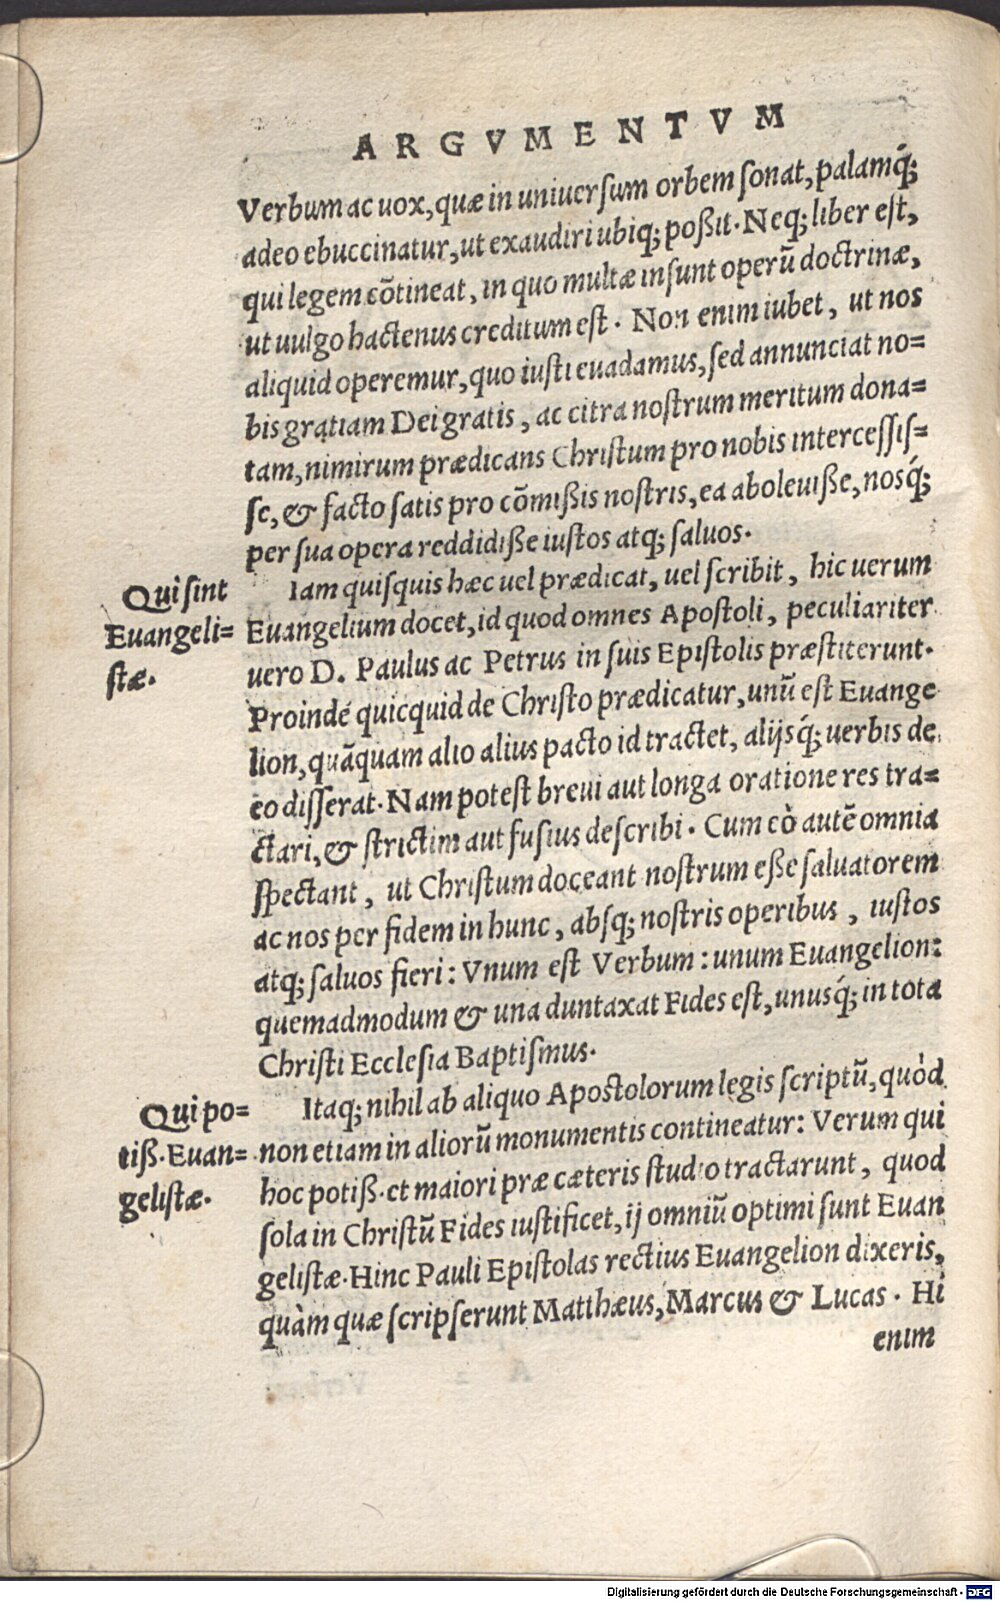 ARGVMENTVM
Verbum ac uox, quæ in uniuersum orbem sonat, palamq́;
adeo ebuccinatur, ut exaudiri ubiq; poßit. Neq; liber est,
qui legem cōtineat, in quo multæ insunt operū doctrinæ,
ut uulgo hactenus creditum est. Non enim iubet, ut nos
aliquid operemur, quo iusti euadamus, sed annunciat no=
bis gratiam Dei gratis, ac citra nostrum meritum dona=
tam, nimirum prædicans Christum pro nobis intercessis=
se, & facto satis pro cōmißis nostris, ea aboleuiße, nosq́;
per sua opera reddidiße iustos atq; saluos.
Qui sint
Euangeli=
stæ.
Iam quisquis hæc uel prædicat, uel scribit, hic uerum
Euangelium docet, id quod omnes Apostoli, peculiariter
uero D. Paulus ac Petrus in suis Epistolis præstiterunt.
Proinde quicquid de Christo prædicatur, unū est Euange
lion, quāquam alio alius pacto id tractet, alijsq́; uerbis de
eo disserat. Nam potest breui aut longa oratione res tra=
ctari, & strictim aut fusius describi. Cum eò autē omnia
spectant, ut Christum doceant nostrum eße saluatorem
ac nos per fidem in hunc, absq; nostris operibus, iustos
atq; saluos fieri: Vnum est Verbum: unum Euangelion:
quemadmodum & una duntaxat Fides est, unusq́; in tota
Christi Ecclesia Baptismus.
Qui po=
tiß. Euan=
gelistæ.
Itaq; nihil ab aliquo Apostolorum legis scriptū, quòd
non etiam in aliorū monumentis contineatur: Verum qui
hoc potiß. et maiori præ cæteris studio tractarunt, quod
sola in Christū Fides iustificet, ij omniū optimi sunt Euan
gelistæ. Hinc Pauli Epistolas rectius Euangelion dixeris,
quàm quæ scripserunt Matthæus, Marcus & Lucas. Hi
enim
Digitalisierung gefördert durch die Deutsche Forschungsgemeinschaft - DFG